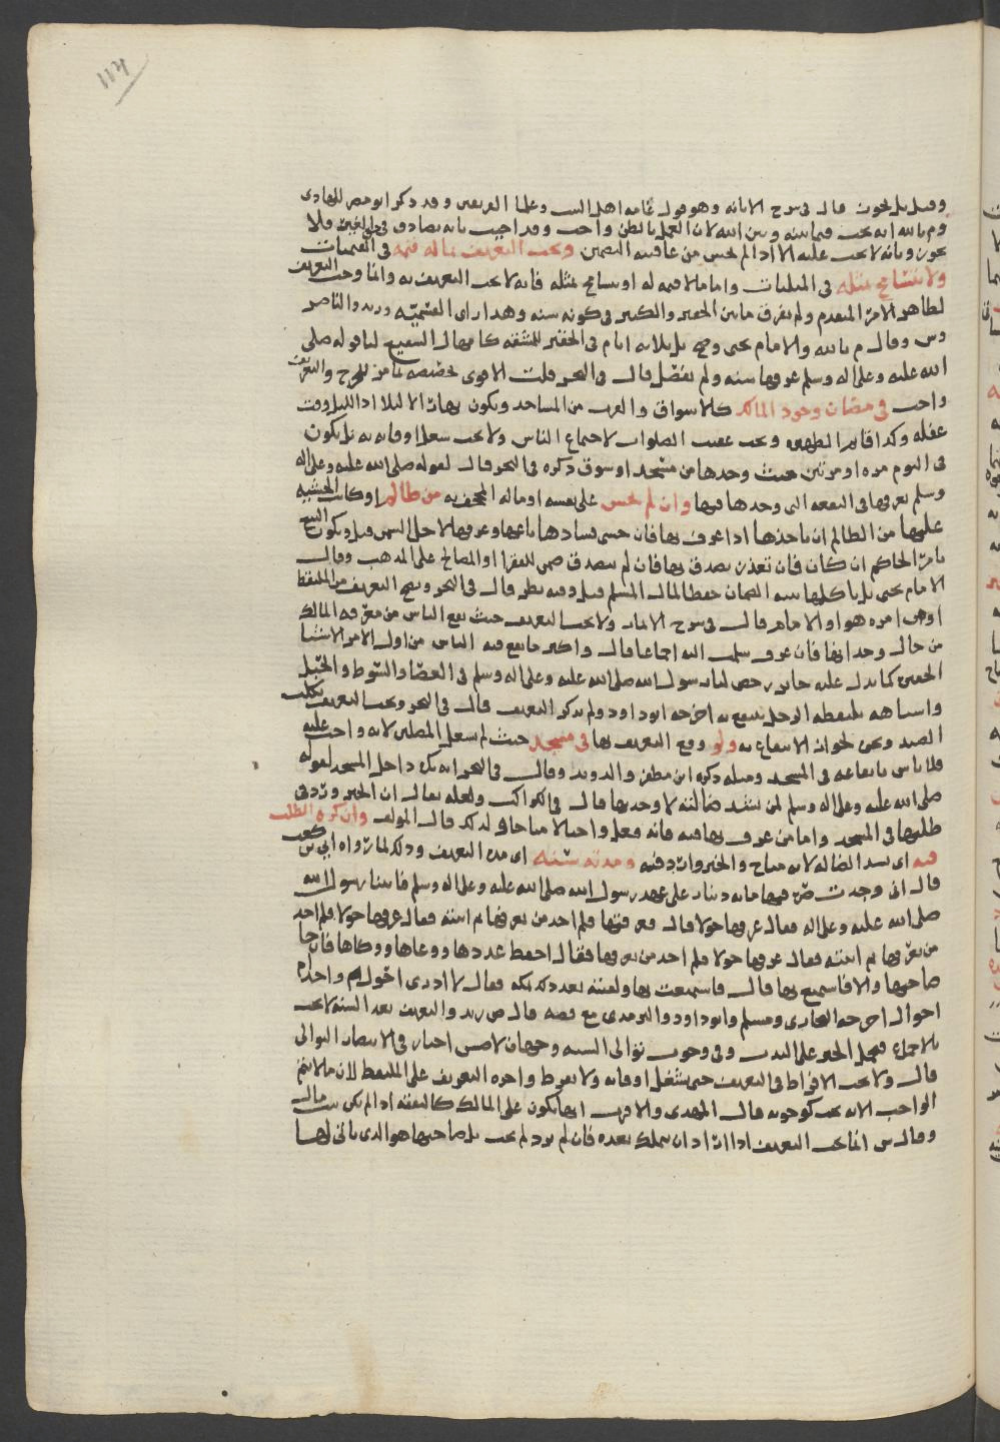 114
وقيل بل يجوز قال في شرح الابانه وهو قول عامه اهل البيت وعلما الفريقين وقد ذكر ابو مضر للهادي
وم بالله انه يجب فيما بينه وبين الله لان العمل بالظن واحب وقد اجيب بانه يصادف حق الغير فلا
يجوز وبانه لا يجب عليه الا اذا لم يخش من عاقبه التضمين ويجب التعريف بما له قيمه في القيميات
ولا يتسامح بمثله في المثليات واما ما لا قيمه له او يتسامح بمثله فانه لا يجب التعريف به وانما وجب التعريف
لظاهر الامر المتقدم ولم يفرق ما بين الحقير والكبير في كونه سنه وهذا راي القسميه وزيد والناصر
وش وقال م بالله والامام يحيى وصح بل ثلاثه ايام في الحقير للمشقه كما قال الشفيع لنا قوله صلى
الله عليه وعلى اله وسلم عرفها سنه ولم يفصل قال في البحر قلت الاقوى تخصيصه بما مر للحرج والتعريف
واجب في مضان وجود المالك كالاسواق والقرب من المساجد ويكون نهارا لا ليلا اذ الليل وقت
غفله وكذا قايم الظهيره ويجب عقيب الصلوات لاجتماع الناس ولا يجب شغل اوقاته به بل يكون
في اليوم مره او مرتين حيث وجدها من مسجد او سوق ذكره في البحر قال لقوله صلى الله عليه وعلى اله
وسلم يعرفها في البقعه التي وجدها فيها وان لم يخش على نفسه او ماله المجحف به من ظالم او كانت الخشيه
عليها من الظالم ان ياخذها اذا عرف بها فان خشي فسادها باعها وعرفها لاجل الثمن قيل ويكون البيع
بامر الحاكم ان كان فان تعذر تصدق بها فان لم يتصدق ضمن للفقرا او المصالح على المذهب وقال
الامام يحيى بل ياكلها بنيه الضمان حفظا لمال المسلم قيل وفيه نظر قال في البحر ويصح التعريف من الملتقط
او من امره هو او الامام قال في شرح الاثمار ولا يجب التعريف حيث يقع الناس من معرفه المالك
من حال وجدانها فان عرف سلمت اليه اجماعا قال واكثر ما يقع فيه الناس من اول الامر الاشيا
الحقيره كما يدل عليه حديث جابر رخص لنا رسول الله صلى الله عليه وعلى اله وسلم في العصا والسوط والحبل
واشباهه يلتقطه الرجل ينتفع به اخرجه ابو داود ولم يذكر التعريف قال في البحر ويجب التعريف بكلب
الصيد ونحوه لجواز الانتفاع به ولو وقع التعريف بها في مسجد حيث لم يشغل المصلين لانه واجب عليه
فلا باس بايقاعه في المسجد ومثله ذكره ابن مظفر والدويد وقال في البحر انه يكره داخل المسجد لقوله
صلى الله عليه وعلى اله وسلم لمن ينشد ضالته لا وجدتها قال في الكواكب ولعله يقال ان الخبر ورد في
طلبها في المسجد واما من عرف بها فيه فانه فعل واجبا لا مباحا فلذلك قال المولف وان كره الطلب
فيه اي نشد الضاله لانه مباح والخبر وارد فيه ومدته سنه اي مده التعريف وذلك لما رواه ابي بن كعب
قال اني وجدت صره فيها مائه دينار على عهد رسول الله صلى الله عليه وعلى اله وسلم فاتيت بها رسول الله
صلى الله عليه وعلى اله فقال عرفها حولا قال فعرفتها فلم اجد من يعرفها ثم اتيته فقال عرفها حولا فلم اجد
من يعرفها ثم اتيته فقال عرفها حولا فلم اجد من يعرفها فقال احفظ عددها ووعاها ووكاها فان جا
صاحبها والا فاستمتع بها قال فاستمتعت بها ولقيته بعد ذلك بمكه فقال لا ادري احول ام واحد ام
احوال اخرجه البخاري ومسلم وابو داود والترمذي مع قصه قال ص زيد والتعريف بعد السنه لا يجب
بالاجماع فيحمل الخبر على الندب وفي وجوب توالي السنه وجهان لاصش اختار في الانتصار التوالي
قال ولا يجب الافراط في التعريف حتى يشغل اوقاته ولا يفرط واجره التعريف على الملتقط لان ما لا يتم
الواجب الا به يجب كوجوبه قال المهدي والاقرب انها تكون على المالك كالنفقه اذا لم يكن بيت مال
وقال ش انما يجب التعريف اذا اراد ان يتملك بعده فان لم يرد لم يجب بل صاحبها هو الذي ياتي لها